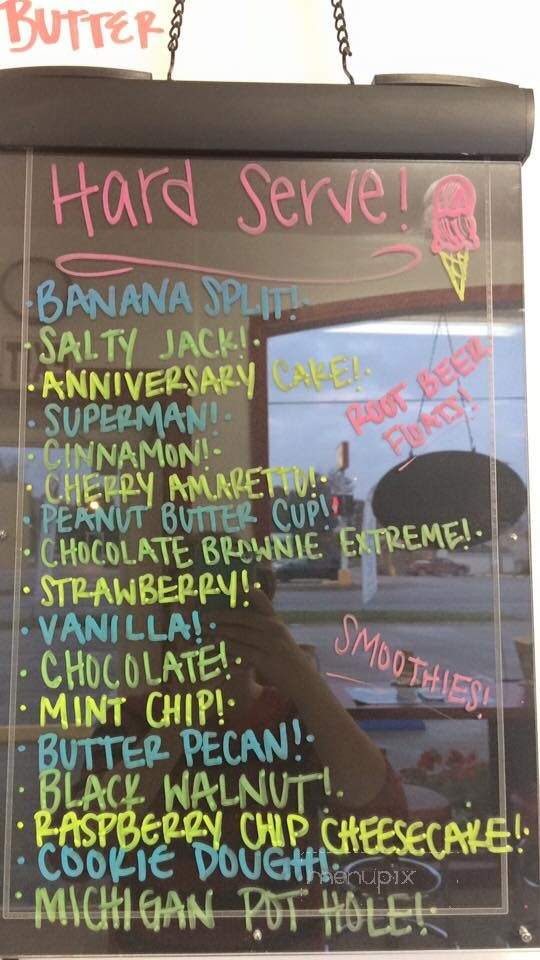 BUTTER
Hard Serve!
·BANANA SPLIT!·
·SALTY JACK!·
·ANNIVERSARY CAKE!·
·SUPERMAN!·
·CINNAMON!·
·CHERRY AMARETTO!·
·PEANUT BUTTER CUP!·
·CHOCOLATE BROWNIE EXTREME!·
·STRAWBERRY!·
·VANILLA!·
·CHOCOLATE!·
·MINT CHIP!·
·BUTTER PECAN!·
·BLACK WALNUT!·
·RASPBERRY CHIP CHEESECAKE!·
·COOKIE DOUGH!·
·MICHIGAN POT HOLE!·
ROOT BEER
FLOATS!
SMOOTHIES!
menupix